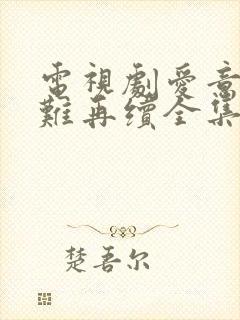 電視劇愛意
難再續全集
楚吾尔